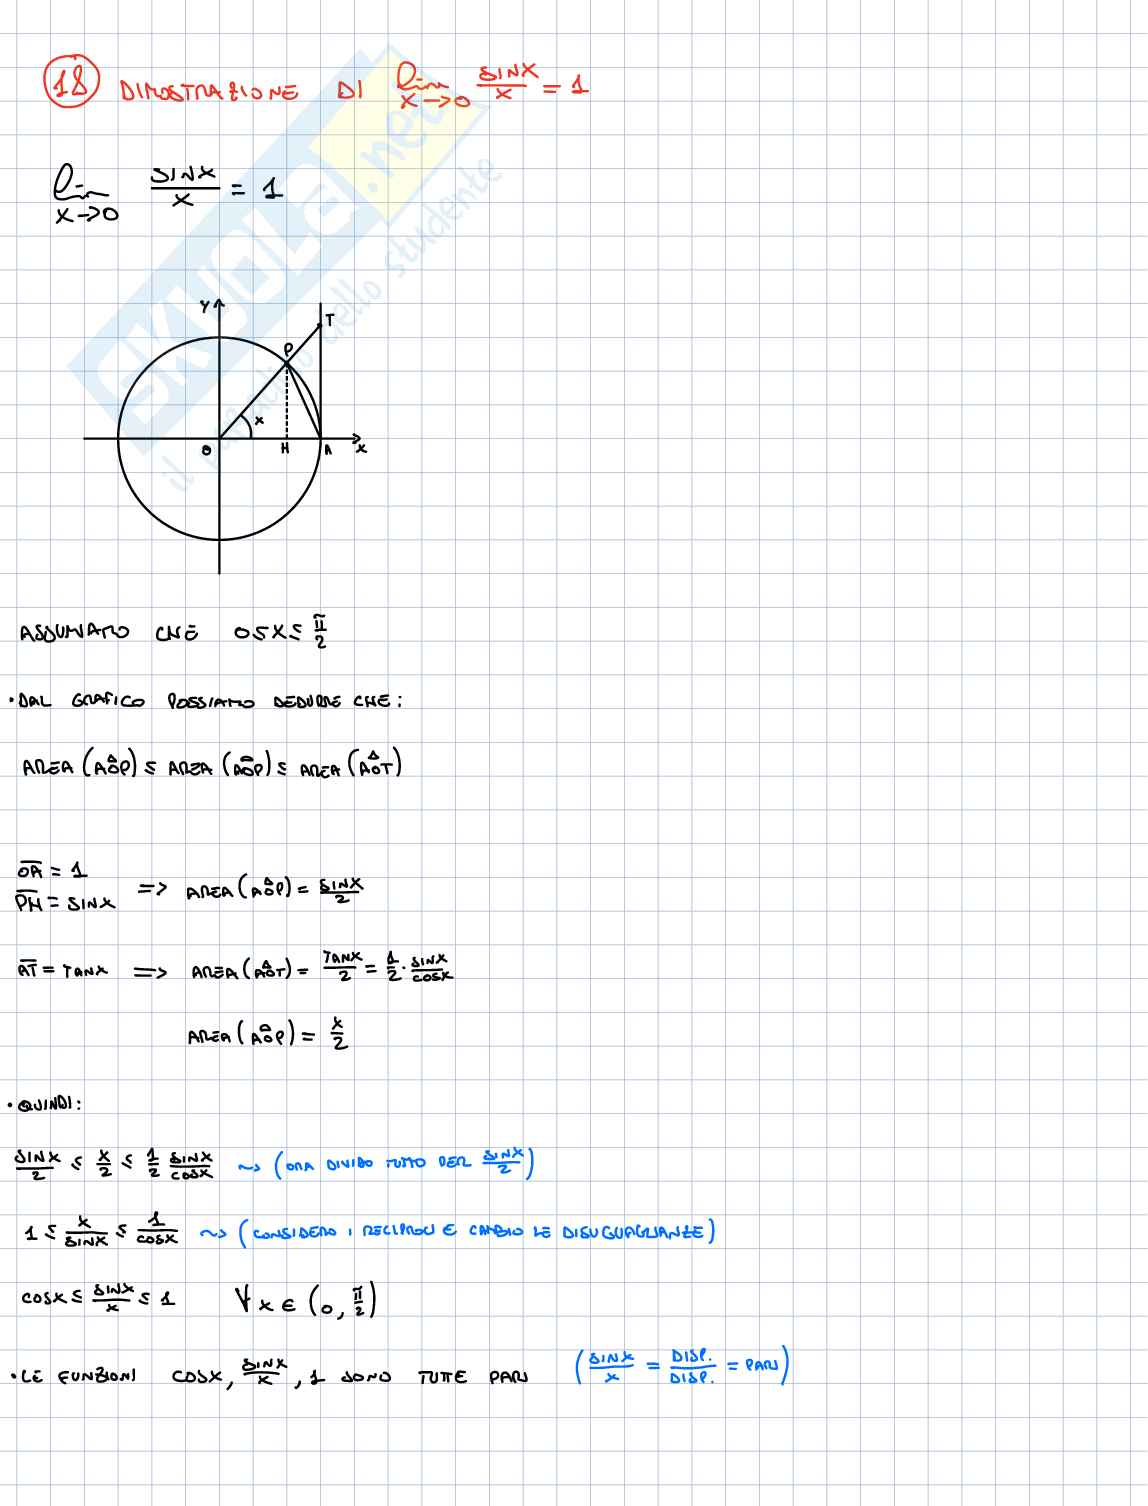 18 DIMOSTRAZIONE DI lim x→0 SINX/X = 1
lim x→0 SINX/X = 1
Y
T
P
X
O H A X
ASSUMIAMO CHE 0≤X≤π/2
• DAL GRAFICO POSSIAMO DEDURRE CHE:
AREA (AÔP) ≤ AREA (AÔP) ≤ AREA (AÔT)
OA = 1
PH = SINX => AREA (AÔP) = SINX/2
AT = TANX => AREA (AÔT) = TANX/2 = 1/2 · SINX/COSX
AREA (AÔP) = X/2
• QUINDI:
SINX/2 ≤ X/2 ≤ 1/2 SINX/COSX ~> (ORA DIVIDO TUTTO PER SINX/2)
1 ≤ X/SINX ≤ 1/COSX ~> (CONSIDERO I RECIPROCI E CAMBIO LE DISUGUAGLIANZE)
COSX ≤ SINX/X ≤ 1 ∀ X ∈ (0, π/2)
• LE FUNZIONI COSX, SINX/X, 1 SONO TUTTE PARI (SINX/X = DISP./DISP. = PARI)
SKUOLA.net
il paradiso dello studente